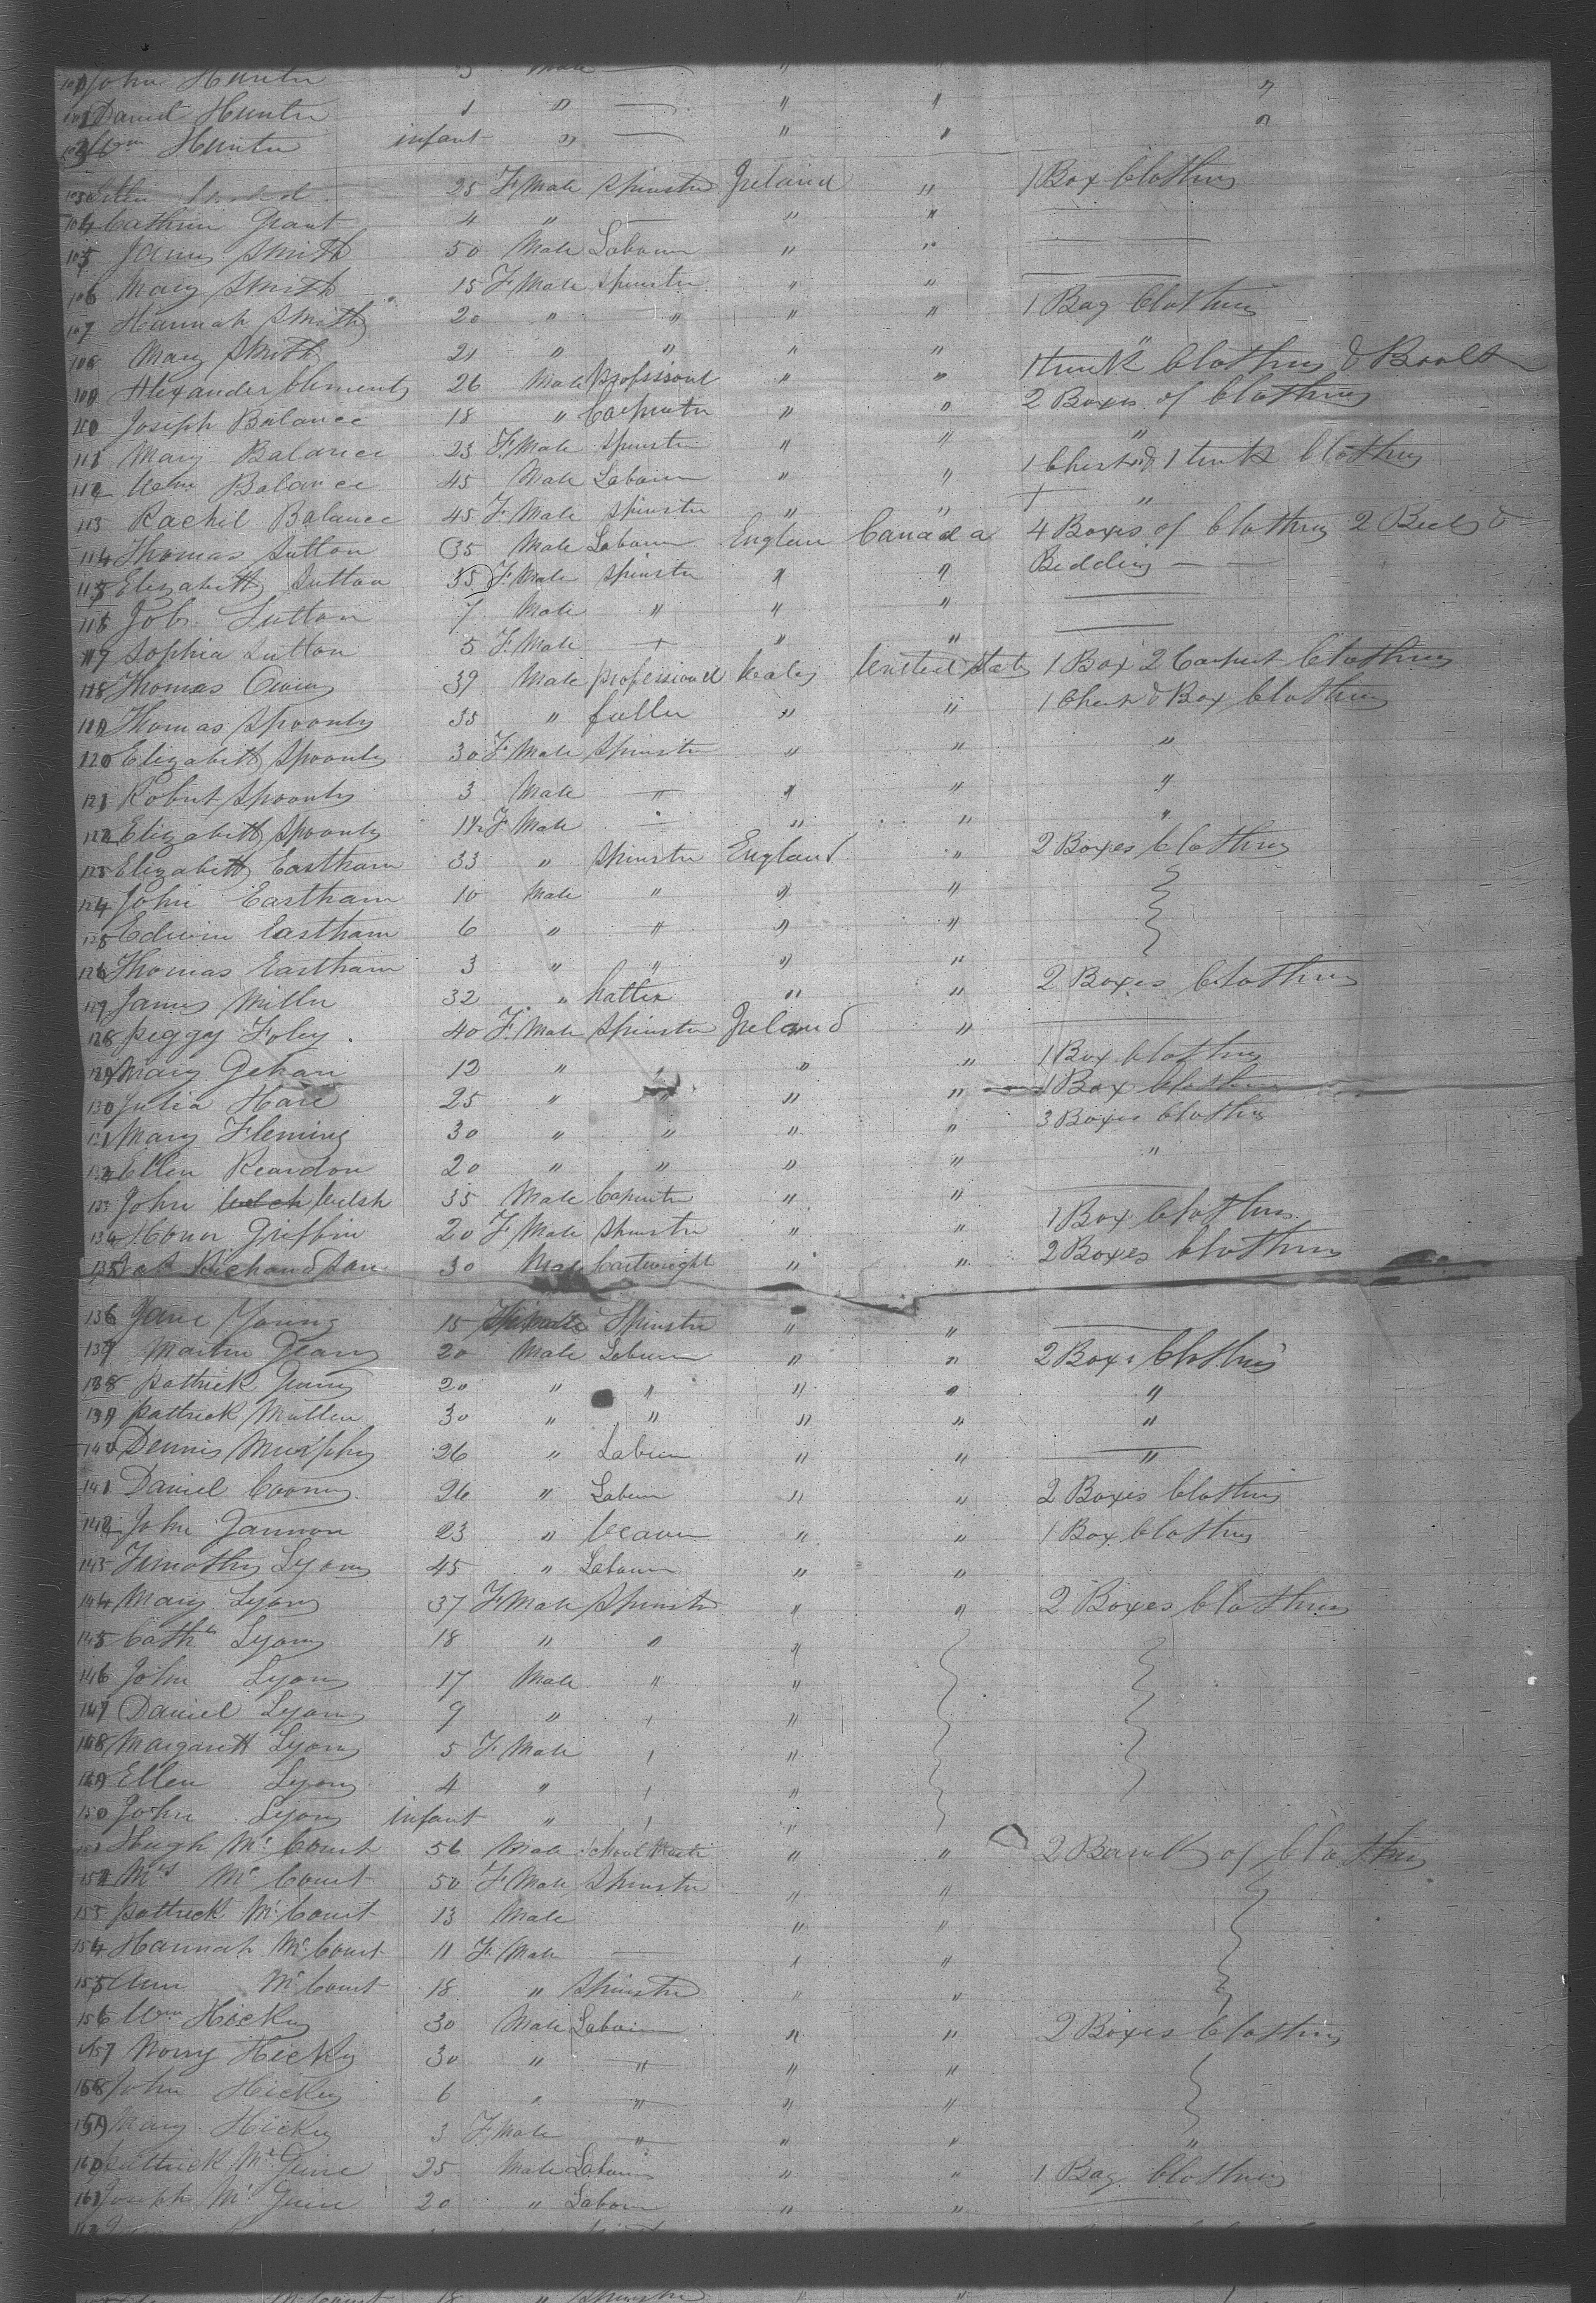 John Hunter 3 Male — " "
101 Daniel Hunter 1 " — " " "
102 Wm Hunter infant " — " " "
103 Ellen 25 F. Male Spinster Ireland " 1 Box Clothing
104 Cathrin Grant 4 " — " " —
105 James Smith 50 Male Labourer " " —
106 Mary Smith 15 F. Male Spinster " " —
107 Hannah Smith 20 " " " " 1 Bag Clothing
108 Mary Smith 21 " " " " "
109 Alexander Clements 26 Male Professional " " 1 trunk Clothing & Books
110 Joseph Balance 18 " Carpenter " " 2 Boxes of Clothing
111 Mary Balance 23 F. Male Spinster " " "
112 Wm Balance 45 Male Labourer " " 1 Chest & 1 trunk Clothing
113 Rachel Balance 45 F. Male Spinster " " "
114 Thomas Sutton 35 Male Labourer England Canada 4 Boxes of Clothing 2 Beds &
115 Elizabeth Sutton 35 F. Male Spinster " " Bedding —
116 Job Sutton 7 Male " " " —
117 Sophia Sutton 5 F. Male + " " —
118 Thomas Owing 39 Male professional Wales United States 1 Box 2 Carpet Clothing
119 Thomas Spoonly 35 " fuller " " 1 Chest & Box Clothing
120 Elizabeth Spoonly 30 F. Male Spinster " " "
121 Robert Spoonly 3 Male " " " "
122 Elizabeth Spoonly 1½ F. Male — " " "
123 Elizabeth Eastham 33 " Spinster England " 2 Boxes Clothing
124 John Eastham 10 Male " " "
125 Edwin Eastham 6 " " " "
126 Thomas Eastham 3 " " " "
127 James Miller 32 " hatter " " 2 Boxes Clothing
128 Peggy Foley 40 F. Male Spinster Ireland " —
129 Mary Gehan 12 " " " " 1 Box Clothing
130 Julia Hare 25 " " " " 1 Box Clothing
131 Mary Fleming 30 " " " " 3 Boxes Clothing
132 Ellen Reardon 20 " " " " "
133 John Welch Welsh 35 Male Carpenter " " —
134 Honor Griffin 20 F. Male Spinster " " 1 Box Clothing
135 Richardson 30 Male Cartwright " " 2 Boxes Clothing
136 Jane Young 15 Spinster " " —
137 Martin Geary 20 Male Labourer " " 2 Boxes Clothing
138 Pattrick Geary 20 " " " " "
139 Pattrick Mullen 30 " " " " "
140 Dennis Murphy 26 " Labourer " " "
141 Daniel Cooney 26 " Labourer " " 2 Boxes Clothing
142 John Gannon 23 " Weaver " " 1 Box Clothing
143 Timothy Lyons 45 " Labourer " "
144 Mary Lyons 37 F. Male Spinster " " 2 Boxes Clothing
145 Cathn Lyons 18 " " "
146 John Lyons 17 Male " "
147 Daniel Lyons 9 " "
148 Margarett Lyons 5 F. Male "
149 Ellen Lyons 4 " "
150 John Lyons infant " "
151 Hugh McCourt 56 Male School Master " " 2 of Clothing
152 Mrs McCourt 50 F. Male Spinster " "
153 Pattrick McCourt 13 Male " "
154 Hannah McCourt 11 F. Male — " "
155 Ann McCourt 18 " Spinster " "
156 Wm Hickey 30 Male Labourer " " 2 Boxes Clothing
157 Norry Hickey 30 " " " "
158 John Hickey 6 " " " "
159 Mary Hickey 3 F. Male " " " "
160 Pattrick McGuire 25 Male Labourer " " 1 Bag Clothing
161 Joseph McGuire 20 " Labourer " " —
McCourt 18 " Spinster " "